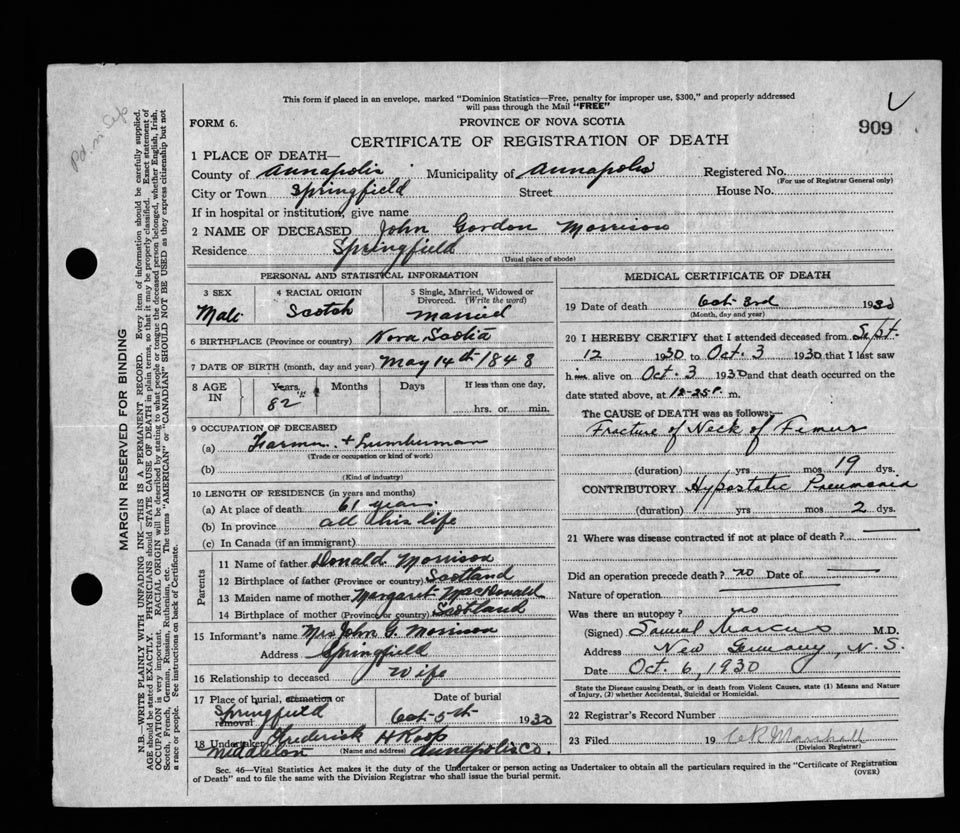 This form if placed in an envelope, marked "Dominion Statistics—Free, penalty for improper use, $300," and properly addressed
will pass through the Mail "FREE"
FORM 6. PROVINCE OF NOVA SCOTIA 909
CERTIFICATE OF REGISTRATION OF DEATH
1 PLACE OF DEATH—
County of Annapolis Municipality of Annapolis Registered No.
(For use of Registrar General only)
City or Town Springfield Street House No.
If in hospital or institution, give name
2 NAME OF DECEASED John Gordon Morrison
Residence Springfield
(Usual place of abode)
PERSONAL AND STATISTICAL INFORMATION
3 SEX 4 RACIAL ORIGIN 5 Single, Married, Widowed or
Divorced. (Write the word)
Male Scotch Married
6 BIRTHPLACE (Province or country) Nova Scotia
7 DATE OF BIRTH (month, day and year) May 14th 1848
8 AGE IN Years Months Days If less than one day,
82 hrs. or min.
9 OCCUPATION OF DECEASED
(a) Farmer + Lumberman
(Trade or occupation or kind of work)
(b)
(Kind of industry)
10 LENGTH OF RESIDENCE (in years and months)
(a) At place of death 61 years
(b) In province all his life
(c) In Canada (if an immigrant)
Parents
11 Name of father Donald Morrison
12 Birthplace of father (Province or country) Scotland
13 Maiden name of mother Margaret MacDonald
14 Birthplace of mother (Province or country) Scotland
15 Informant's name Mrs John G. Morrison
Address Springfield
16 Relationship to deceased Wife
17 Place of burial, cremation or Date of burial
removal Springfield Oct 5th 1930
18 Undertaker Frederick H Roop
Middleton (Name and address) Annapolis Co.
MEDICAL CERTIFICATE OF DEATH
19 Date of death Oct 3rd 1930
(Month, day and year)
20 I HEREBY CERTIFY that I attended deceased from Sept.
12 1930 to Oct. 3 1930 that I last saw
him alive on Oct. 3 1930 and that death occurred on the
date stated above, at 12-25 P. m.
The CAUSE OF DEATH was as follows:
Fracture of Neck of Femur
(duration) yrs mos 19 dys.
CONTRIBUTORY Hypostatic Pneumonia
(duration) yrs mos 2 dys.
21 Where was disease contracted if not at place of death?
Did an operation precede death? no Date of
Nature of operation
Was there an autopsy? no
(Signed) Samuel Marcus M.D.
Address New Germany, N.S.
Date Oct. 6, 1930
State the Disease causing Death, or in death from Violent Causes, state (1) Means and Nature
of Injury, (2) whether Accidental, Suicidal or Homicidal.
22 Registrar's Record Number
23 Filed 19 Marshall
(Division Registrar)
Sec. 46—Vital Statistics Act makes it the duty of the Undertaker or person acting as Undertaker to obtain all the particulars required in the "Certificate of Registration
of Death" and to file the same with the Division Registrar who shall issue the burial permit. (OVER)
MARGIN RESERVED FOR BINDING
N.B.—WRITE PLAINLY WITH UNFADING INK—THIS IS A PERMANENT RECORD. Every item of information should be carefully supplied.
AGE should be stated EXACTLY. PHYSICIANS should STATE CAUSE OF DEATH in plain terms, so that it may be properly classified. Exact statement of
OCCUPATION is very important. RACIAL ORIGIN will be described by stating to what people or tongue the deceased person belonged, whether English, Irish,
Scotch, French, German, Russian, Ruthenian, etc. The terms "AMERICAN" or "CANADIAN" SHOULD NOT BE USED as they express citizenship but not
a race or people. See instructions on back of Certificate.